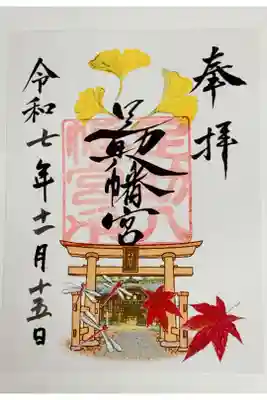 奉拝
足助八幡宮
令和七年十一月十五日